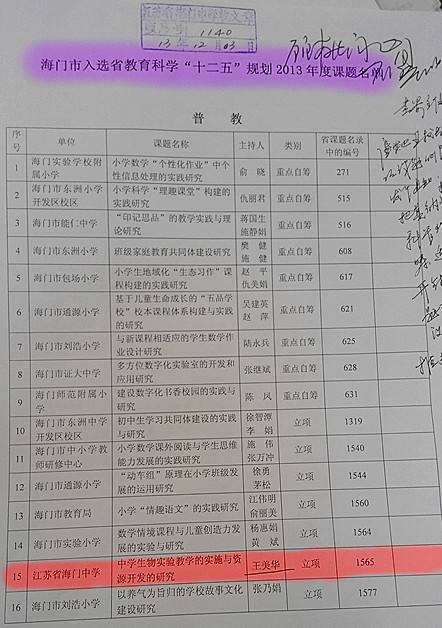 1140
13 12 03
海门市入选省教育科学“十二五”规划2013年度课题名单
普 教
序号 单位 课题名称 主持人 类别 省课题名录中的编号
1 海门实验学校附属小学 小学数学“个性化作业”中个性信息处理的实践研究 俞 晓 重点自筹 271
2 海门市东洲小学开发区校区 小学科学“理趣课堂”构建的实践研究 仇丽君 重点自筹 515
3 海门市能仁中学 “印记思品”的教学实践与理论研究 蒋国生 施静娟 重点自筹 516
4 海门市东洲小学 班级家庭教育共同体建设研究 樊 健 施 健 重点自筹 608
5 海门市包场小学 小学生地域化“生态习作”课程构建的实践研究 赵 平 仇美娟 重点自筹 617
6 海门市通源小学 基于儿童生命成长的“五品学校”校本课程体系构建与实践的研究 吴建英 赵 萍 重点自筹 621
7 海门市刘浩小学 与新课程相适应的学生数学作业设计研究 陆永兵 重点自筹 625
8 海门市证大中学 多方位数字化实验室的开发和应用研究 张继斌 重点自筹 628
9 海门师范附属小学 建设数字化书香校园的实践与研究 陈 凤 重点自筹 631
10 海门市东洲中学开发区校区 初中生学习共同体建设的实践与研究 徐智潭 李 娟 立项 1319
11 海门市中小学教师研修中心 小学数学课外阅读与学生思维能力发展的实践研究 施 伟 张万冲 立项 1540
12 海门市通源小学 “动车组”原理在小学班级发展的运用研究 徐勇 茅松 立项 1544
13 海门市教育局 小学“情趣语文”的实践研究 江伟明 俞丽美 立项 1560
14 海门市实验小学 数学情境课程与儿童创造力发展的实践与研究 杨惠娟 黄 斌 立项 1564
15 江苏省海门中学 中学生物实验教学的实施与资源开发的研究 王美华 立项 1565
16 海门市刘浩小学 以养气为旨归的学校故事文化建设研究 张乃娟 立项 1577